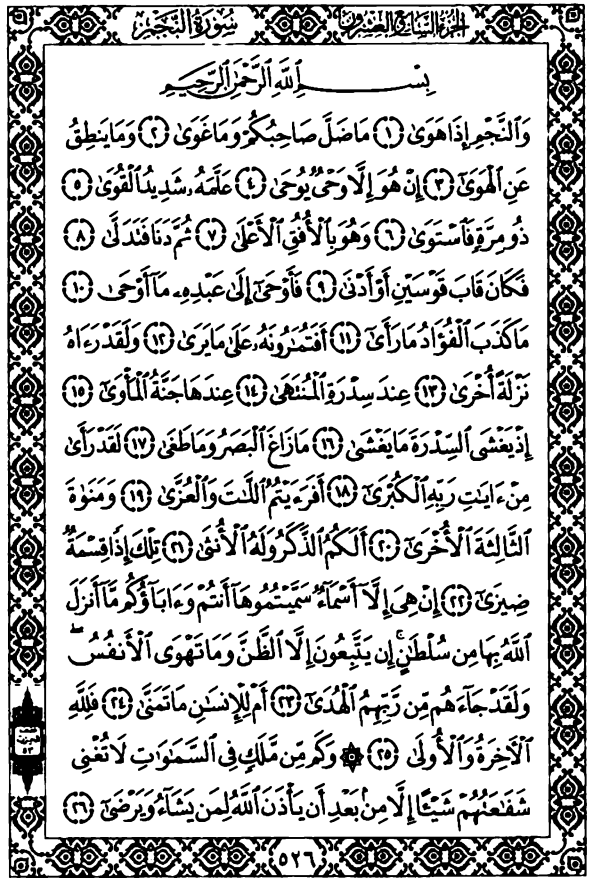 الجزء السابع والعشرون
سورة النجم
بِسْمِ ٱللَّهِ ٱلرَّحْمَٰنِ ٱلرَّحِيمِ
وَٱلنَّجْمِ إِذَا هَوَىٰ ١ مَا ضَلَّ صَاحِبُكُمْ وَمَا غَوَىٰ ٢ وَمَا يَنطِقُ
عَنِ ٱلْهَوَىٰٓ ٣ إِنْ هُوَ إِلَّا وَحْىٌ يُوحَىٰ ٤ عَلَّمَهُۥ شَدِيدُ ٱلْقُوَىٰ ٥
ذُو مِرَّةٍ فَٱسْتَوَىٰ ٦ وَهُوَ بِٱلْأُفُقِ ٱلْأَعْلَىٰ ٧ ثُمَّ دَنَا فَتَدَلَّىٰ ٨
فَكَانَ قَابَ قَوْسَيْنِ أَوْ أَدْنَىٰ ٩ فَأَوْحَىٰٓ إِلَىٰ عَبْدِهِۦ مَآ أَوْحَىٰ ١٠
مَا كَذَبَ ٱلْفُؤَادُ مَا رَأَىٰٓ ١١ أَفَتُمَٰرُونَهُۥ عَلَىٰ مَا يَرَىٰ ١٢ وَلَقَدْ رَءَاهُ
نَزْلَةً أُخْرَىٰ ١٣ عِندَ سِدْرَةِ ٱلْمُنتَهَىٰ ١٤ عِندَهَا جَنَّةُ ٱلْمَأْوَىٰٓ ١٥
إِذْ يَغْشَى ٱلسِّدْرَةَ مَا يَغْشَىٰ ١٦ مَا زَاغَ ٱلْبَصَرُ وَمَا طَغَىٰ ١٧ لَقَدْ رَأَىٰ
مِنْ ءَايَٰتِ رَبِّهِ ٱلْكُبْرَىٰٓ ١٨ أَفَرَءَيْتُمُ ٱللَّٰتَ وَٱلْعُزَّىٰ ١٩ وَمَنَوٰةَ
ٱلثَّالِثَةَ ٱلْأُخْرَىٰٓ ٢٠ أَلَكُمُ ٱلذَّكَرُ وَلَهُ ٱلْأُنثَىٰ ٢١ تِلْكَ إِذًا قِسْمَةٌ
ضِيزَىٰٓ ٢٢ إِنْ هِىَ إِلَّآ أَسْمَآءٌ سَمَّيْتُمُوهَآ أَنتُمْ وَءَابَآؤُكُم مَّآ أَنزَلَ
ٱللَّهُ بِهَا مِن سُلْطَٰنٍ ۚ إِن يَتَّبِعُونَ إِلَّا ٱلظَّنَّ وَمَا تَهْوَى ٱلْأَنفُسُ ۖ
وَلَقَدْ جَآءَهُم مِّن رَّبِّهِمُ ٱلْهُدَىٰٓ ٢٣ أَمْ لِلْإِنسَٰنِ مَا تَمَنَّىٰ ٢٤ فَلِلَّهِ
ٱلْءَاخِرَةُ وَٱلْأُولَىٰ ٢٥ ۞ وَكَم مِّن مَّلَكٍ فِى ٱلسَّمَٰوَٰتِ لَا تُغْنِى
شَفَٰعَتُهُمْ شَيْـًٔا إِلَّا مِنۢ بَعْدِ أَن يَأْذَنَ ٱللَّهُ لِمَن يَشَآءُ وَيَرْضَىٰٓ ٢٦
٥٣
٥٢٦